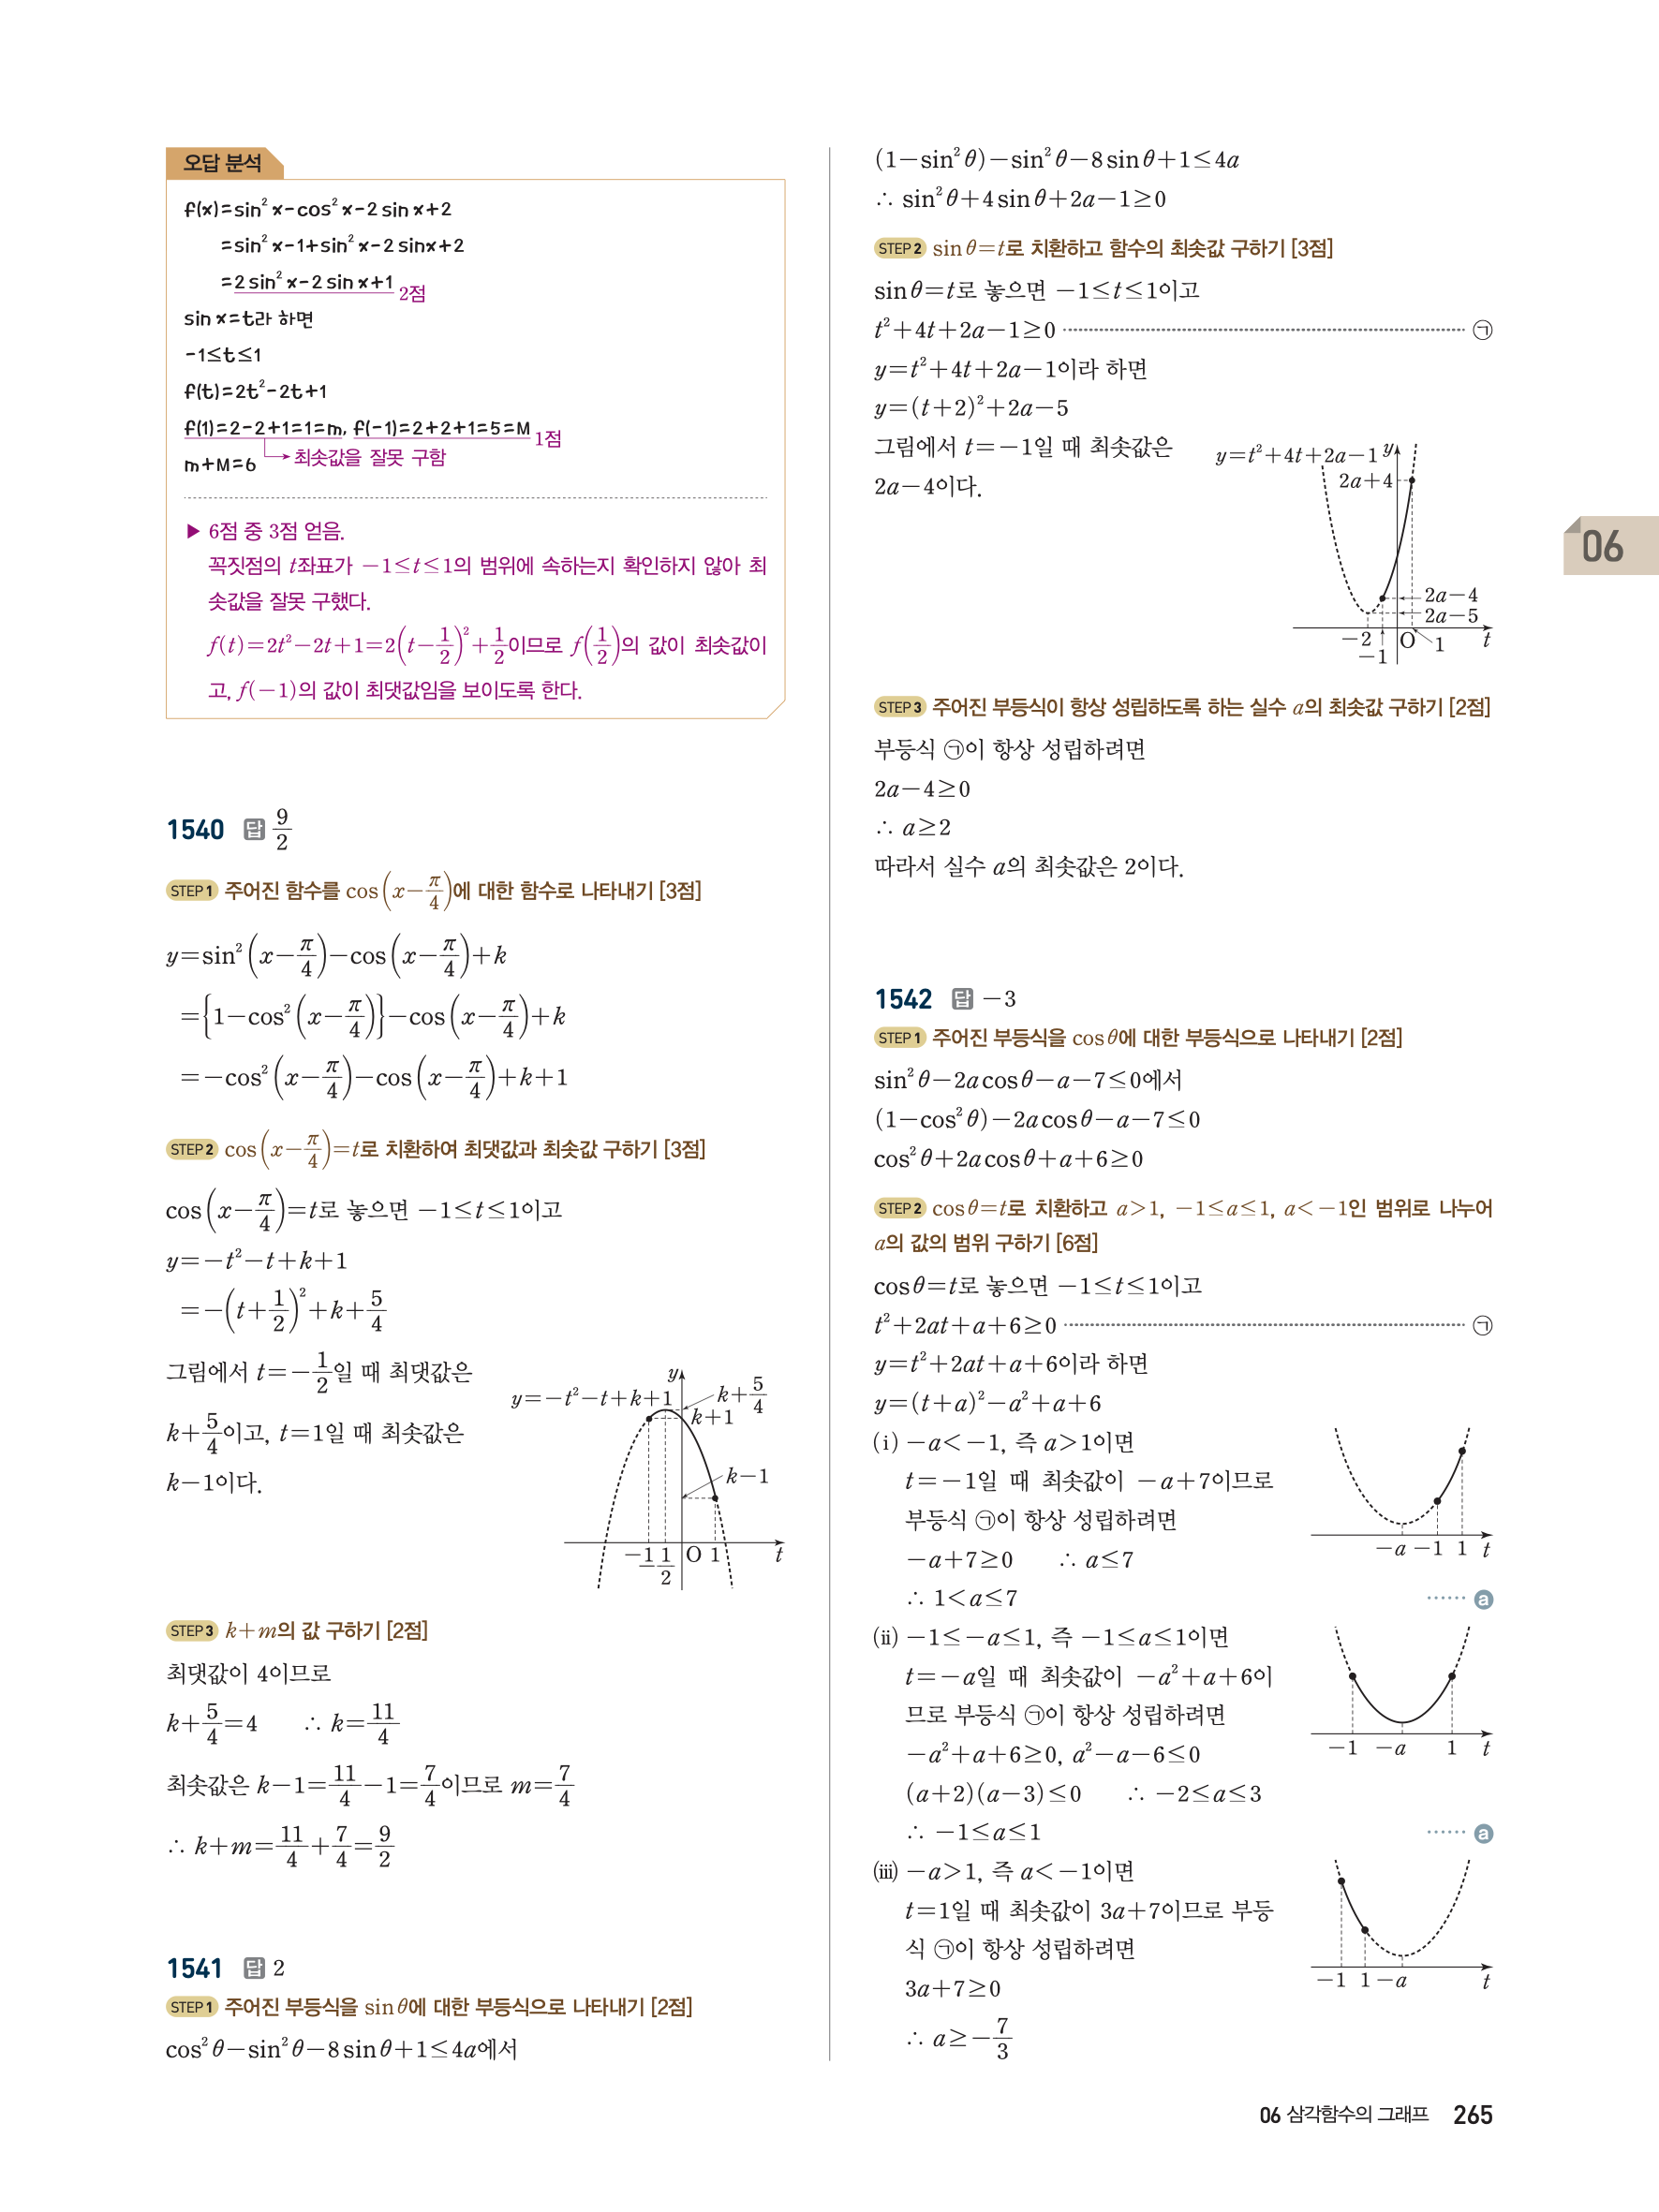 오답 분석
f(x)=sin² x-cos² x-2 sin x+2
=sin² x-1+sin² x-2 sinx+2
=2 sin² x-2 sin x+1 2점
sin x=t라 하면
-1≤t≤1
f(t)=2t²-2t+1
f(1)=2-2+1=1=m, f(-1)=2+2+1=5=M 1점
m+M=6 → 최솟값을 잘못 구함
▶ 6점 중 3점 얻음.
꼭짓점의 t좌표가 -1≤t≤1의 범위에 속하는지 확인하지 않아 최
솟값을 잘못 구했다.
f(t)=2t²-2t+1=2(t-1/2)²+1/2이므로 f(1/2)의 값이 최솟값이
고, f(-1)의 값이 최댓값임을 보이도록 한다.
1540 답 9/2
STEP 1 주어진 함수를 cos(x-π/4)에 대한 함수로 나타내기 [3점]
y=sin²(x-π/4)-cos(x-π/4)+k
={1-cos²(x-π/4)}-cos(x-π/4)+k
=-cos²(x-π/4)-cos(x-π/4)+k+1
STEP 2 cos(x-π/4)=t로 치환하여 최댓값과 최솟값 구하기 [3점]
cos(x-π/4)=t로 놓으면 -1≤t≤1이고
y=-t²-t+k+1
=-(t+1/2)²+k+5/4
그림에서 t=-1/2일 때 최댓값은
k+5/4이고, t=1일 때 최솟값은
k-1이다.
y=-t²-t+k+1
y
k+5/4
k+1
k-1
-1 -1/2 O 1 t
STEP 3 k+m의 값 구하기 [2점]
최댓값이 4이므로
k+5/4=4 ∴ k=11/4
최솟값은 k-1=11/4-1=7/4이므로 m=7/4
∴ k+m=11/4+7/4=9/2
1541 답 2
STEP 1 주어진 부등식을 sin θ에 대한 부등식으로 나타내기 [2점]
cos² θ-sin² θ-8 sin θ+1≤4a에서
(1-sin² θ)-sin² θ-8 sin θ+1≤4a
∴ sin² θ+4 sin θ+2a-1≥0
STEP 2 sin θ=t로 치환하고 함수의 최솟값 구하기 [3점]
sin θ=t로 놓으면 -1≤t≤1이고
t²+4t+2a-1≥0 ㉠
y=t²+4t+2a-1이라 하면
y=(t+2)²+2a-5
그림에서 t=-1일 때 최솟값은
2a-4이다.
y=t²+4t+2a-1 y
2a+4
2a-4
2a-5
-2 O 1 t
-1
STEP 3 주어진 부등식이 항상 성립하도록 하는 실수 a의 최솟값 구하기 [2점]
부등식 ㉠이 항상 성립하려면
2a-4≥0
∴ a≥2
따라서 실수 a의 최솟값은 2이다.
1542 답 -3
STEP 1 주어진 부등식을 cos θ에 대한 부등식으로 나타내기 [2점]
sin² θ-2a cos θ-a-7≤0에서
(1-cos² θ)-2a cos θ-a-7≤0
cos² θ+2a cos θ+a+6≥0
STEP 2 cos θ=t로 치환하고 a>1, -1≤a≤1, a<-1인 범위로 나누어
a의 값의 범위 구하기 [6점]
cos θ=t로 놓으면 -1≤t≤1이고
t²+2at+a+6≥0 ㉠
y=t²+2at+a+6이라 하면
y=(t+a)²-a²+a+6
(ⅰ) -a<-1, 즉 a>1이면
t=-1일 때 최솟값이 -a+7이므로
부등식 ㉠이 항상 성립하려면
-a+7≥0 ∴ a≤7
∴ 1<a≤7 …… ⓐ
-a -1 1 t
(ⅱ) -1≤-a≤1, 즉 -1≤a≤1이면
t=-a일 때 최솟값이 -a²+a+6이
므로 부등식 ㉠이 항상 성립하려면
-a²+a+6≥0, a²-a-6≤0
(a+2)(a-3)≤0 ∴ -2≤a≤3
∴ -1≤a≤1 …… ⓐ
-1 -a 1 t
(ⅲ) -a>1, 즉 a<-1이면
t=1일 때 최솟값이 3a+7이므로 부등
식 ㉠이 항상 성립하려면
3a+7≥0
∴ a≥-7/3
-1 1 -a t
06
06 삼각함수의 그래프 265